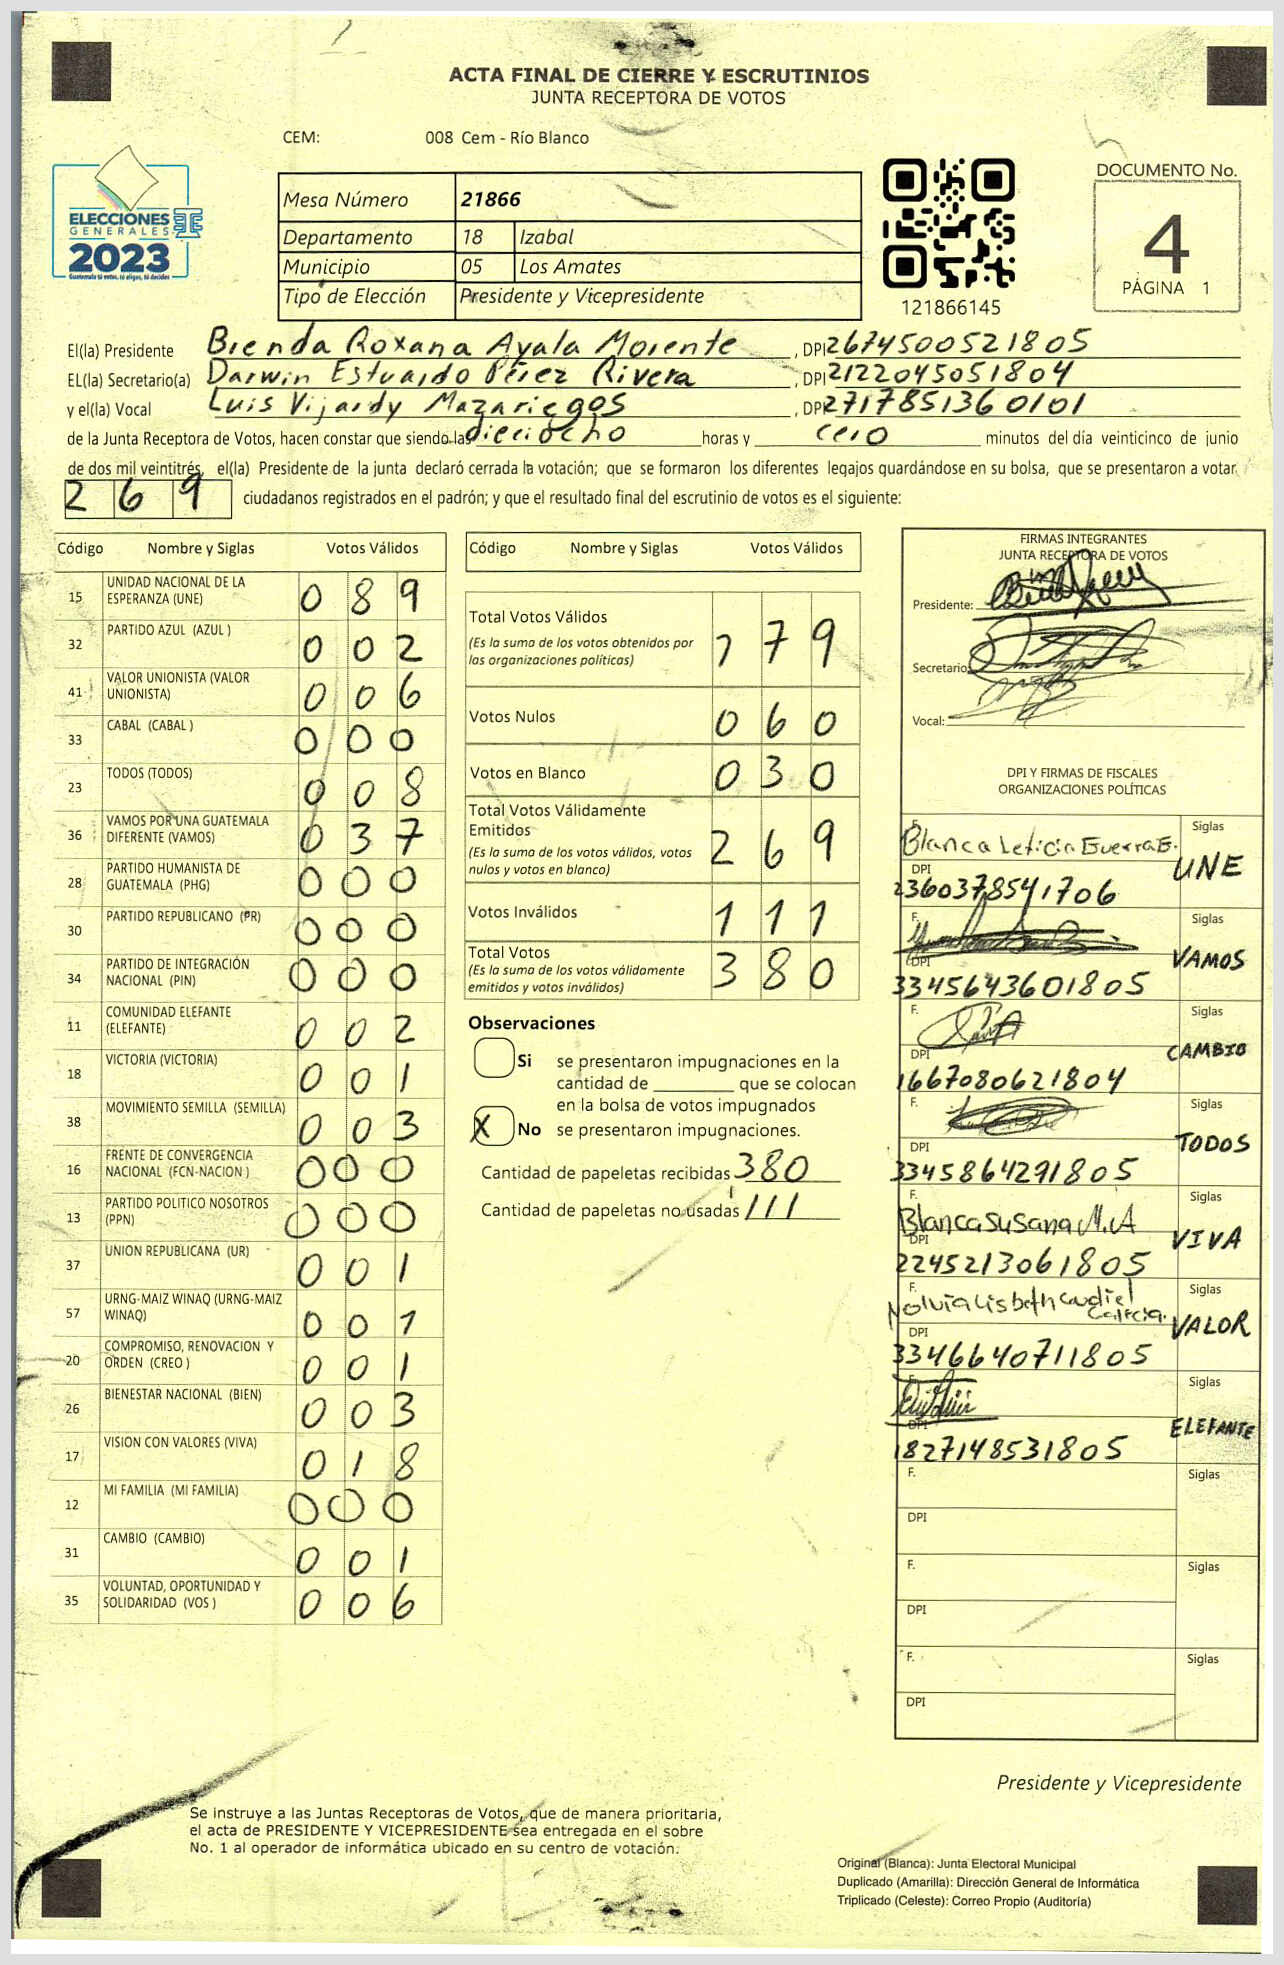 ACTA FINAL DE CIERRE Y ESCRUTINIOS
JUNTA RECEPTORA DE VOTOS
CEM: 008 Cem - Río Blanco
ELECCIONES
GENERALES
2023
Guatemala tú votas, tú eliges, tú decides
Mesa Número 21866
Departamento 18 Izabal
Municipio 05 Los Amates
Tipo de Elección Presidente y Vicepresidente
121866145
DOCUMENTO No.
4
PÁGINA 1
El(la) Presidente Brenda Roxana Ayala Morente, DPI 2674500521805
EL(la) Secretario(a) Darwin Estuardo Pérez Rivera, DPI 2122045051804
y el(la) Vocal Luis Vijardy Mazariegos, DPI 2717851360101
de la Junta Receptora de Votos, hacen constar que siendo las dieciocho horas y cero minutos del día veinticinco de junio
de dos mil veintitrés, el(la) Presidente de la junta declaró cerrada la votación; que se formaron los diferentes legajos guardándose en su bolsa, que se presentaron a votar
269 ciudadanos registrados en el padrón; y que el resultado final del escrutinio de votos es el siguiente:
Código Nombre y Siglas Votos Válidos
15 UNIDAD NACIONAL DE LA ESPERANZA (UNE) 089
32 PARTIDO AZUL (AZUL ) 002
41 VALOR UNIONISTA (VALOR UNIONISTA) 006
33 CABAL (CABAL ) 000
23 TODOS (TODOS) 008
36 VAMOS POR UNA GUATEMALA DIFERENTE (VAMOS) 037
28 PARTIDO HUMANISTA DE GUATEMALA (PHG) 000
30 PARTIDO REPUBLICANO (PR) 000
34 PARTIDO DE INTEGRACIÓN NACIONAL (PIN) 000
11 COMUNIDAD ELEFANTE (ELEFANTE) 002
18 VICTORIA (VICTORIA) 001
38 MOVIMIENTO SEMILLA (SEMILLA) 003
16 FRENTE DE CONVERGENCIA NACIONAL (FCN-NACION ) 000
13 PARTIDO POLITICO NOSOTROS (PPN) 000
37 UNION REPUBLICANA (UR) 001
57 URNG-MAIZ WINAQ (URNG-MAIZ WINAQ) 001
20 COMPROMISO, RENOVACION Y ORDEN (CREO ) 001
26 BIENESTAR NACIONAL (BIEN) 003
17 VISION CON VALORES (VIVA) 018
12 MI FAMILIA (MI FAMILIA) 000
31 CAMBIO (CAMBIO) 001
35 VOLUNTAD, OPORTUNIDAD Y SOLIDARIDAD (VOS ) 006
Código Nombre y Siglas Votos Válidos
Total Votos Válidos 179
(Es la suma de los votos obtenidos por
las organizaciones políticas)
Votos Nulos 060
Votos en Blanco 030
Total Votos Válidamente
Emitidos 269
(Es la suma de los votos válidos, votos
nulos y votos en blanco)
Votos Inválidos 111
Total Votos 380
(Es la suma de los votos válidamente
emitidos y votos inválidos)
Observaciones
Si se presentaron impugnaciones en la
cantidad de ________ que se colocan
en la bolsa de votos impugnados
X No se presentaron impugnaciones.
Cantidad de papeletas recibidas 380
Cantidad de papeletas no usadas 111
FIRMAS INTEGRANTES
JUNTA RECEPTORA DE VOTOS
Presidente:
Secretario:
Vocal:
DPI Y FIRMAS DE FISCALES
ORGANIZACIONES POLÍTICAS
F. Blanca Leticia Guerra E. Siglas
DPI 2360378541706 UNE
F. Siglas
DPI 3345643601805 VAMOS
F. Siglas
DPI 1667080621804 CAMBIO
F. Siglas
DPI 3345864291805 TODOS
F. Blanca Susana M. A Siglas
DPI 2245213061805 VIVA
F. Siglas
DPI 3346640711805 VALOR
F. Siglas
DPI 1827148531805 ELEFANTE
F. Siglas
DPI
F. Siglas
DPI
F. Siglas
DPI
Presidente y Vicepresidente
Se instruye a las Juntas Receptoras de Votos, que de manera prioritaria,
el acta de PRESIDENTE Y VICEPRESIDENTE sea entregada en el sobre
No. 1 al operador de informática ubicado en su centro de votación.
Original (Blanca): Junta Electoral Municipal
Duplicado (Amarilla): Dirección General de Informática
Triplicado (Celeste): Correo Propio (Auditoría)